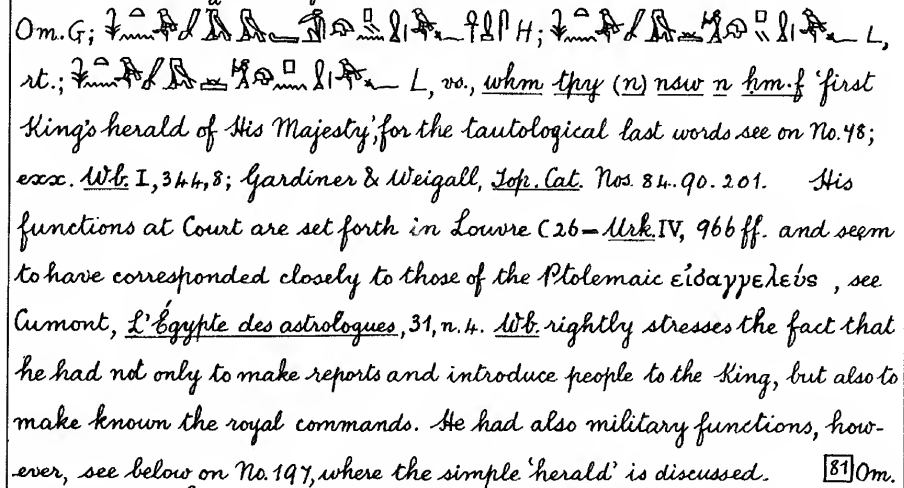 Om. G; H; L,
rt.; L, vs., wḥm tpy (n) nsw n ḥm·f ‘first
King's herald of His Majesty’; for the tautological last words see on No. 48;
exx. Wb. I, 344, 8; Gardiner & Weigall, Top. Cat. Nos. 84. 90. 201. His
functions at Court are set forth in Louvre C 26 = Urk. IV, 966 ff. and seem
to have corresponded closely to those of the Ptolemaic εἰσαγγελεύς, see
Cumont, L'Égypte des astrologues, 31, n. 4. Wb. rightly stresses the fact that
he had not only to make reports and introduce people to the King, but also to
make known the royal commands. He had also military functions, how-
ever, see below on No. 197, where the simple ‘herald’ is discussed. 81 Om.